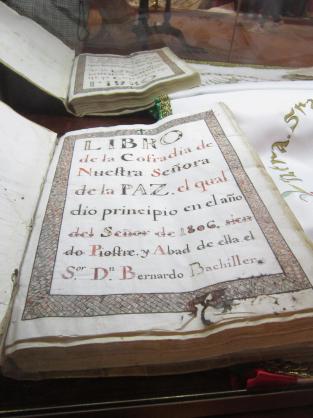 LIBRO
de la Cofradia de
Nuestra Señora
de la PAZ. el qual
dio principio en el año
del Señor de 1806. sien
do Piostre. y Abad de ella el
S.or D.n Bernardo Bachiller.